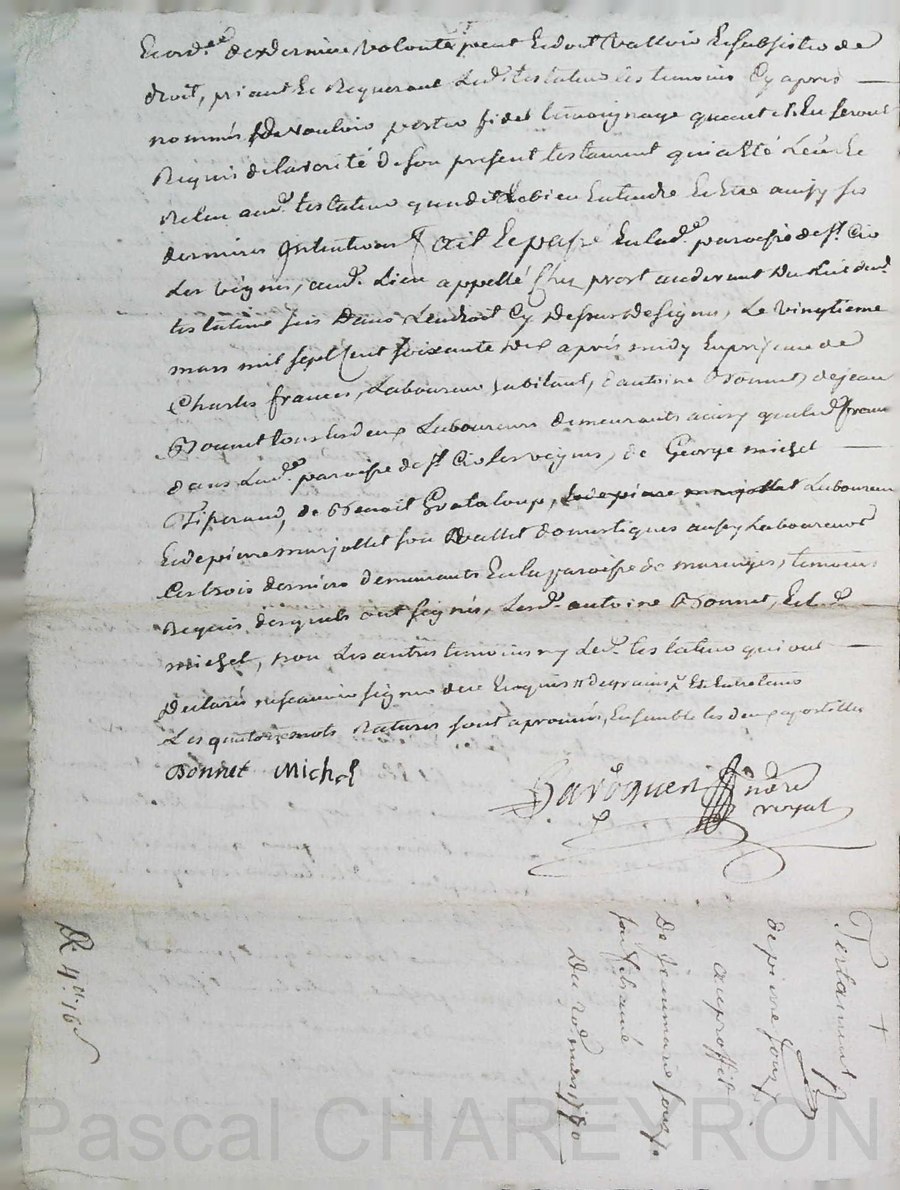 et ord.ee de derniere volonté peut et doit valloir et subsister de
droit, priant et requerant led. testateur les temoins cy apres
nommés de vouloir porter fidel temoignage quant ils en seront
requis de la verité de son present testament qui a été leu et
releu aud. testateur qu'a dit le bien entendre et etre ainsy ses
dernieres intentions fait et passé en lad.e paroisse de St.
les vignes, aud. lieu appellé chez prost au devant du
testateur sis dans l'endroit cy dessus designé, le vingtieme
mars mil sept cent soixante dix apres midy en presence de
Charles frances, laboureur habitant, d'antoine Bonnet, de jean
Bonnet tous les deux laboureurs demeurants ainsy que led.
dans lad.e paroisse de St. les vignes, de George michel
Tisserand, de Benoit Grataloup, laboureur
et de pierre murjollet son vallet domestiques aussy laboureurs
les trois derniers demeurants en la paroisse de maringes, temoins
requis desquels ont signés, lesd. antoine Bonnet, et led.
michel, non les autres temoins ny led. testateur qui ont
declarés ne scavoir signer de ce enquis
les quatorze mots ratures sont aprouvés, ensemble les deux apostilles
Bonnet Michel
no.re
royal
Testament
de pierre
au proffit
de jeanmarie
son fils ainé
Du 20e mars 1770
R. 4ll. 16s
Pascal CHAREYRON